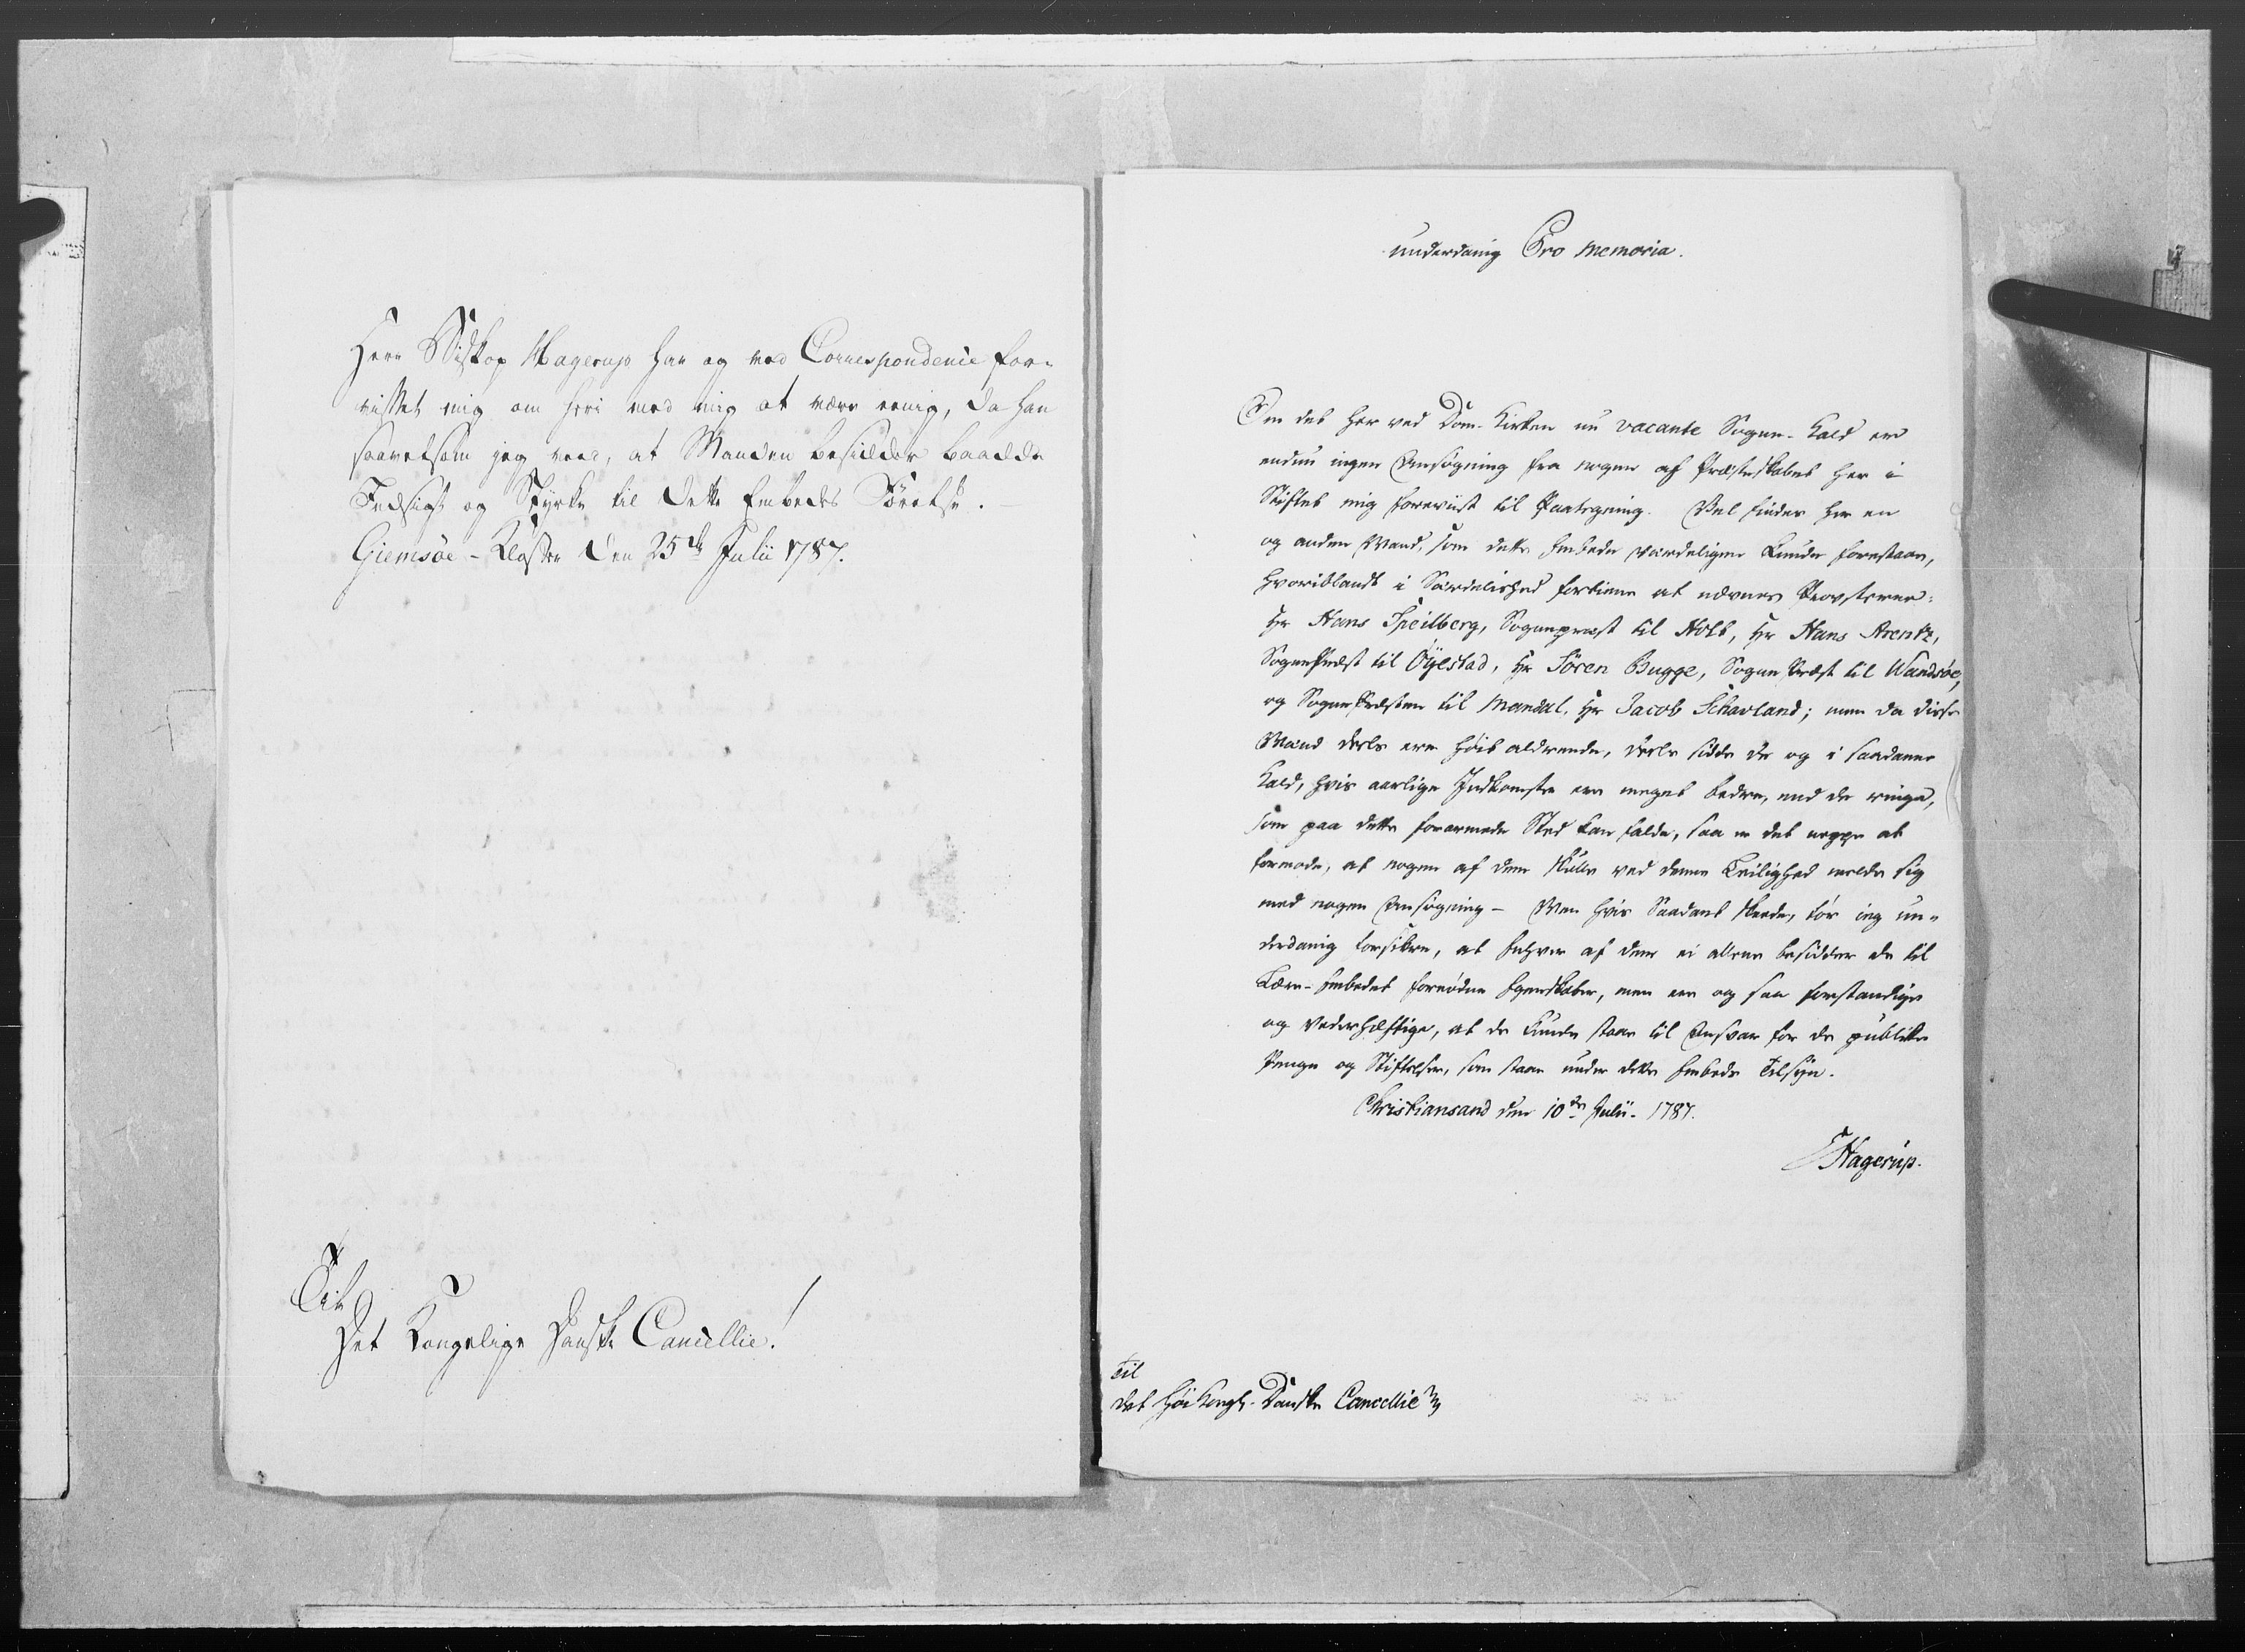 Herr Biskop Hagerup har og ved Correspondence for-
visset mig om heri med mig at være eenig, da han
saavelsom jeg veed, at Manden besidder baade
Indsigt og Styrke til dette Embedes Førelse.
Giemsøe-Kloster den 25de Julii 1787.
Til
Det Kongelige Danske Cancellie!
underdanig Pro Memoria.
Om det her ved Dom-Kirken nu vacante Sogne-Kald er
endnu ingen Ansøgning fra nogen af Præsteskabet her i
Stiftet mig foreviist til Paategning. Vel findes her en
og anden Mand, som dette Embede værdeligen kunde forestaae,
hvoriblandt i Særdelished fortiene at nævnes Provsterne:
Hr Hans Speilberg, Sognepræst til Holt, Hr Hans Arentz,
Sognepræst til Øyestad, Hr Søren Bugge, Sogne Præst til Wandsøe,
og Sognepræsten til Mandal, Hr Jacob Schavland; men da disse
Mænd deels ere høit aldrende, deels sidde de og i saadanne
Kald, hvis aarlige Indkomster ere meget bedre, end de ringe,
som paa dette forarmede Sted kan falde, saa er det neppe at
formode, at nogen af dem skulle ved denne Leilighed melde sig
med nogen Ansøgning - Men hvis Saadant skeede, tør ieg un-
derdanig forsikre, at enhver af dem ei allene besidder de til
Lære-Embedet fornødne Egenskaber, men ere og saa forstandige
og Vederhæftige, at de kunde staae til Ansvar for de publike
Penge og Stiftelser, som staae under dette Embeds Tilsyn.
Christiansand den 10de Julii 1787.
Hagerup.
Til
det Høi Kongl. Danske Cancellie